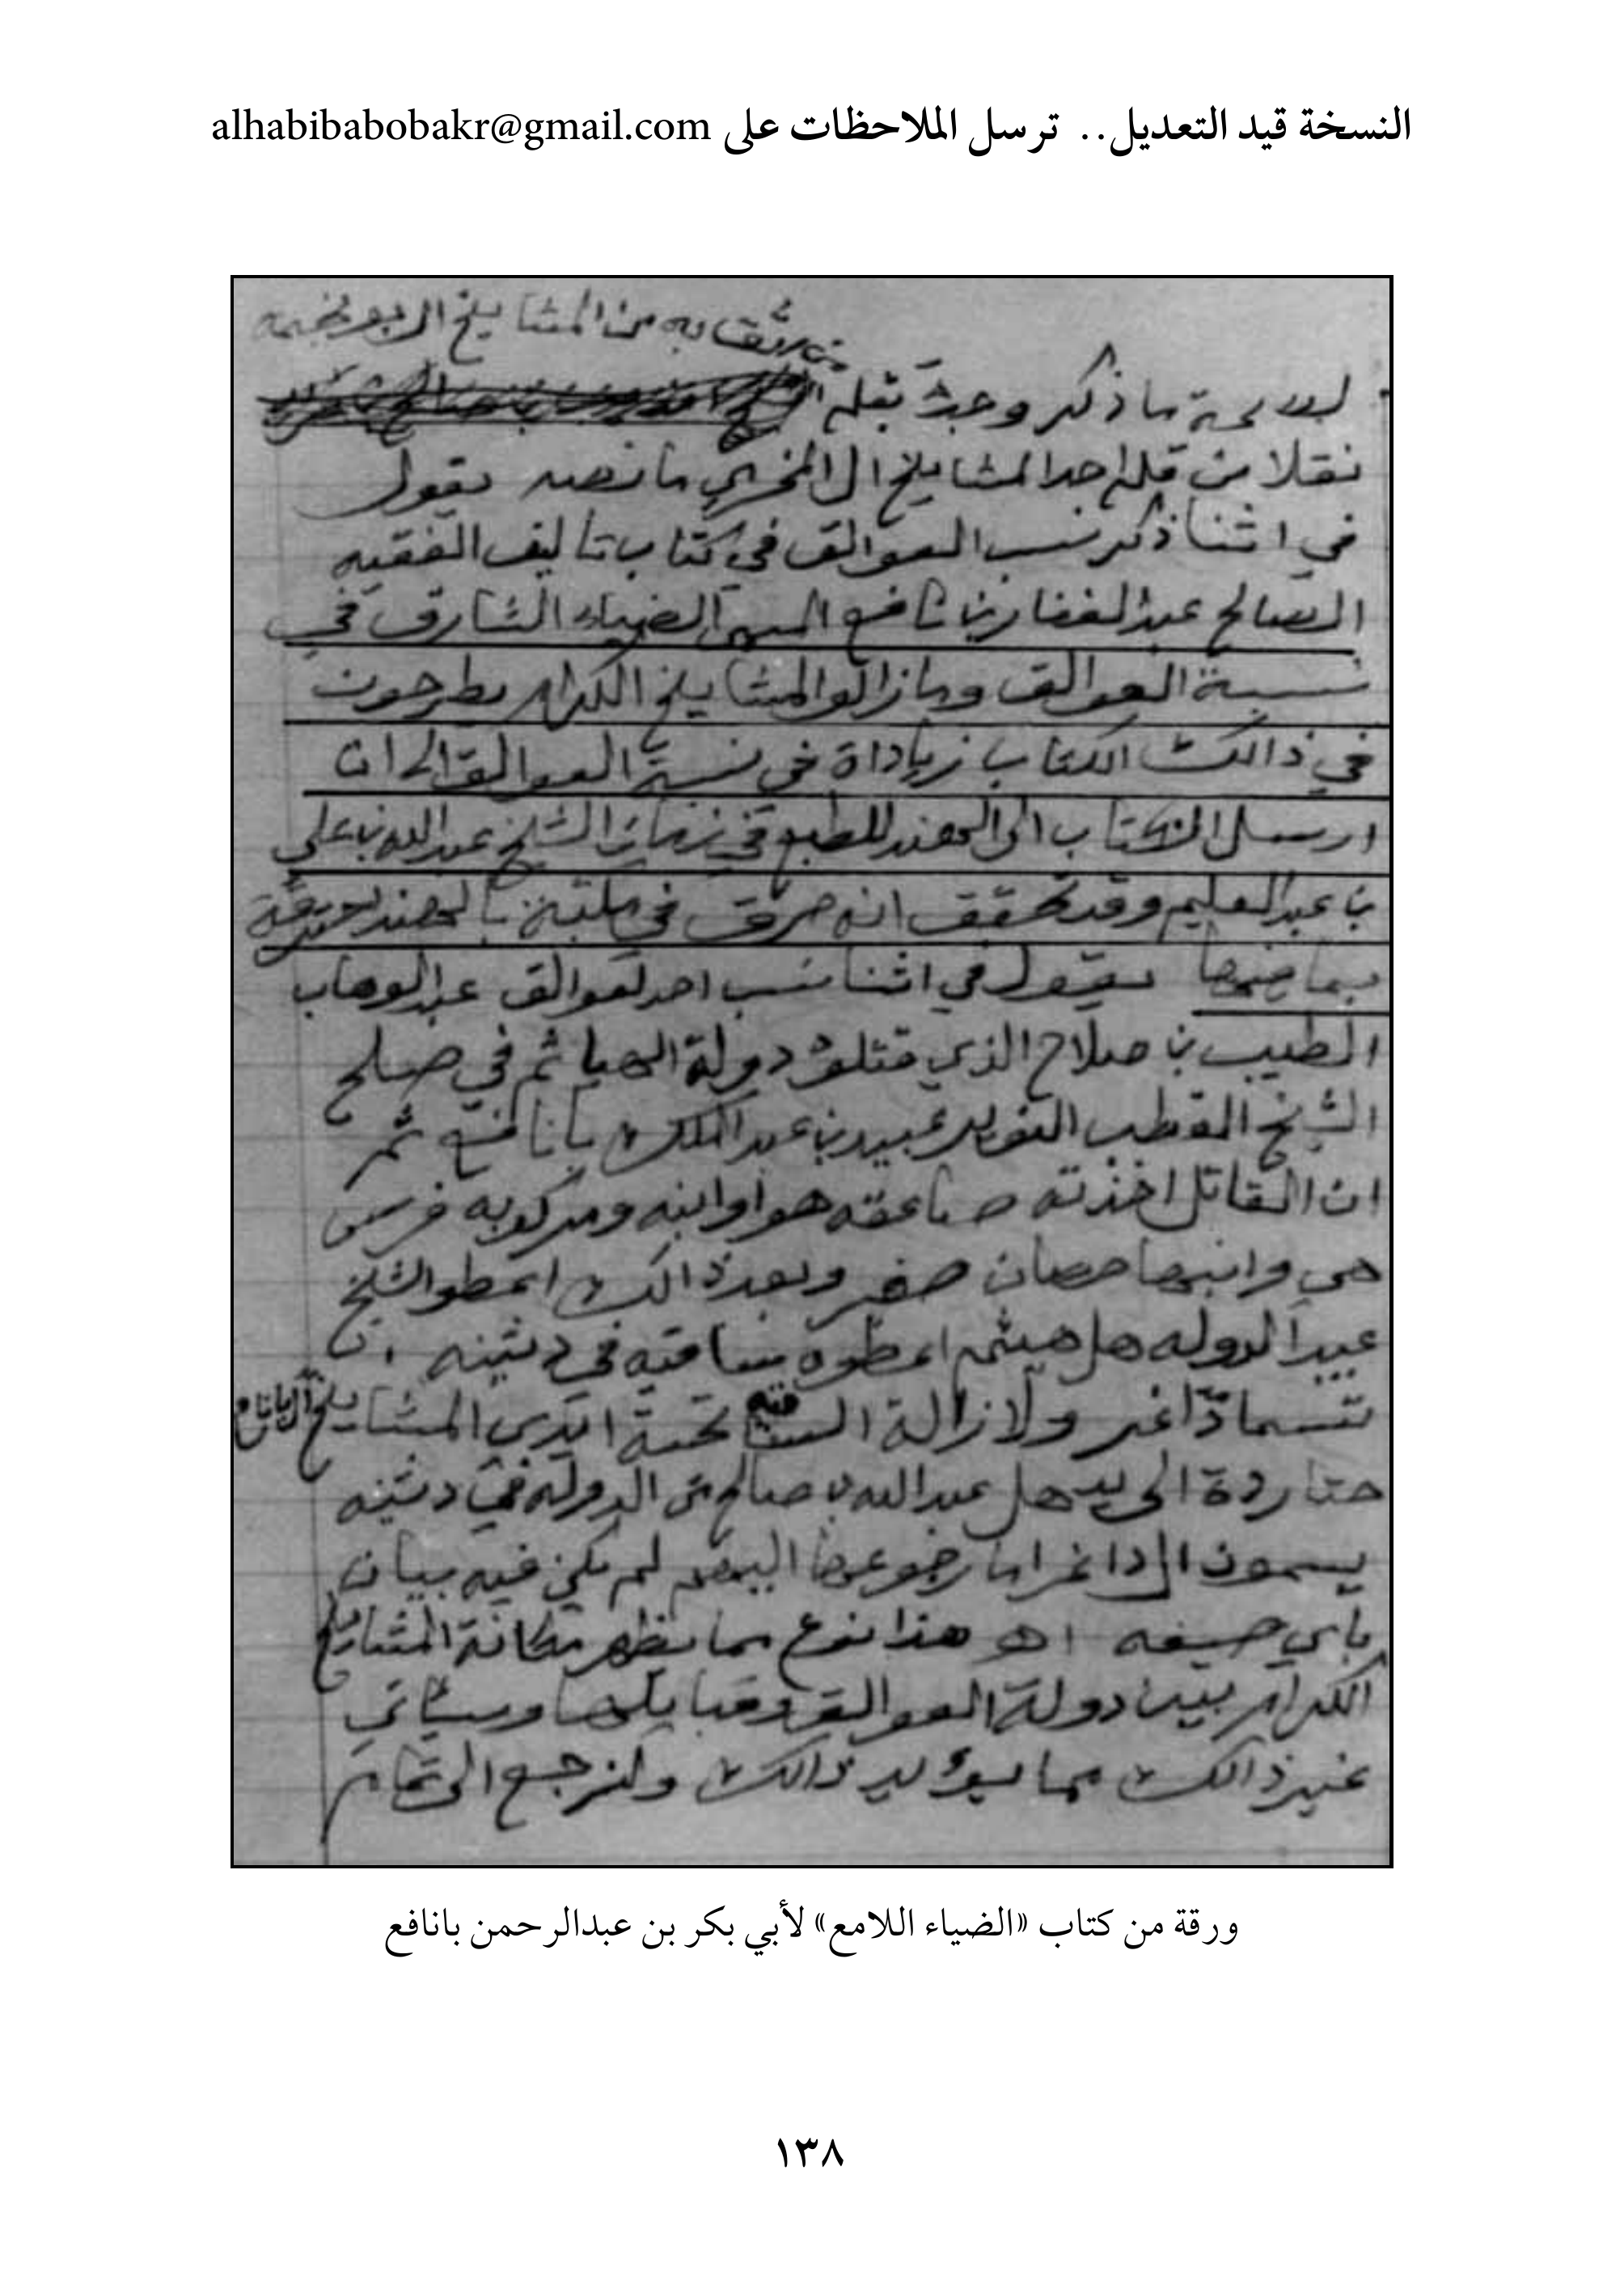 النسخة قيد التعديل.. ترسل الملاحظات على alhabibabobakr@gmail.com
به من المشايخ
ما ذكر وجدت بقلم
نقلا من قلم احد المشايخ ال ما نصه يقول
في اثنا ذكر نسب العوالق في كتاب تاليف الفقيه
الصالح عبدالغفار بن بانافع المسمى الضياء الشارق في
نسبة العوالق ومازالو المشايخ الكرام يطرحون
في ذالك الكتاب زياداة في نسبة العوالق الى ان
ارسل الكتاب الى الهند للطبع في زمان الشيخ عبدالله بن علي
بن عبدالعليم وقد تحقق انه حرق في مكتبة بالهند
بما فيها يقول في اثنا نسب احد لعوالق عبدالوهاب
الطيب بن صلاح الذي قتلوه دولة الهياثم في صلح
الشيخ القطب عبيد بن عبدالملك بانافع ثم
ان القاتل اخذته صاعقه هو وابنه ومركوبه فرس
هي وابنها حصان صغير وبعد ذالك اعطو الشيخ
عبيد الدوله هل هيثم اعطوه ساقيه في دثينه
تسما داغر ولازالة الساقيه تحة ايدي المشايخ ال بانافع
حتا ردة الى يد هل عبدالله بن صالح من الدوله في دثينه
يسمون ال داغر اما رجوعها اليهم لم يكن فيه بيان
باي صيفه اه هذا نوع مما يظهر مكانة المشايخ
الكرام بين دولة العوالق وقبايلها وسياتي
غير ذالك مما يؤيد ذالك ولنرجع الى تمام
ورقة من كتاب «الضياء اللامع» لأبي بكر بن عبدالرحمن بانافع
١٣٨